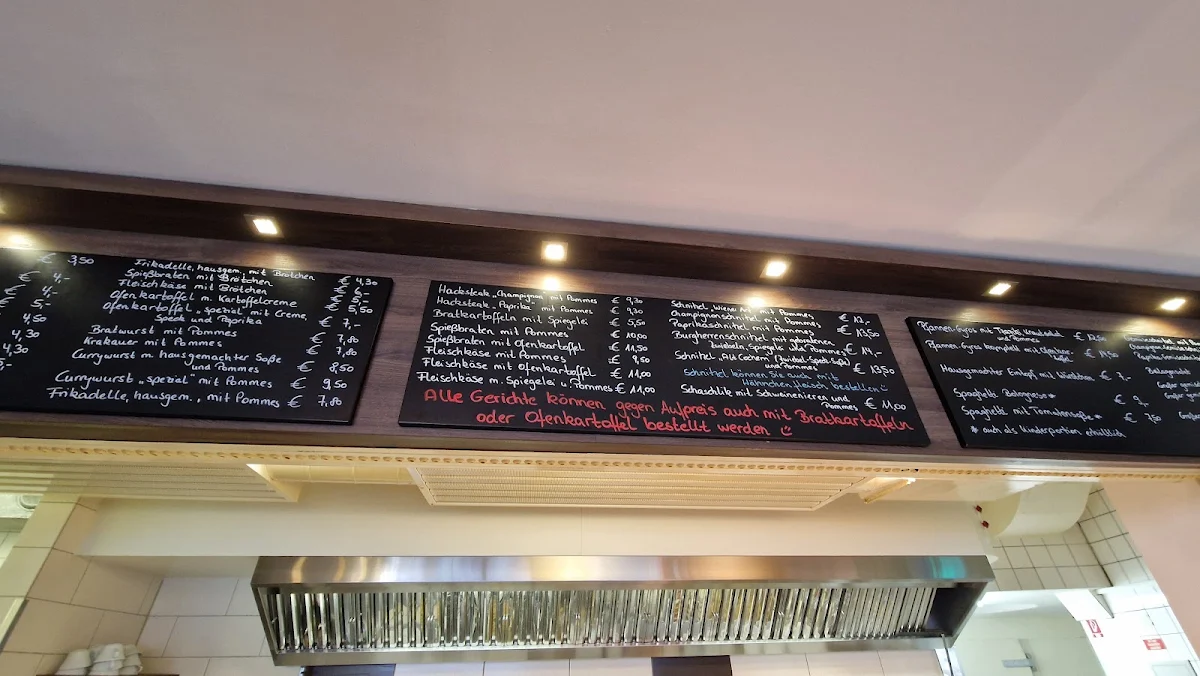 € 3,50
€ 4,-
€ 4,-
€ 5,-
4,50
4,30
4,30
Frikadelle, hausgem., mit Brötchen € 4,30
Spießbraten mit Brötchen € 6,-
Fleischkäse mit Brötchen € 5,-
Ofenkartoffel m. Kartoffelcreme € 5,50
Ofenkartoffel „spezial" mit Creme,
Speck und Paprika € 7,-
Bratwurst mit Pommes € 7,80
Krakauer mit Pommes € 7,80
Currywurst m. hausgemachter Soße
und Pommes € 8,50
Currywurst „spezial" mit Pommes € 9,50
Frikadelle, hausgem., mit Pommes € 7,80
Hacksteak „Champignon" mit Pommes € 9,30
Hacksteak „Paprika" mit Pommes € 9,30
Bratkartoffeln mit Spiegelei € 5,50
Spießbraten mit Pommes € 10,00
Spießbraten mit Ofenkartoffel € 11,50
Fleischkäse mit Pommes € 9,50
Fleischkäse mit Ofenkartoffel € 11,00
Fleischkäse m. Spiegelei u. Pommes € 11,00
Schnitzel „Wiener Art" mit Pommes € 12,-
Champignonschnitzel mit Pommes
Paprikaschnitzel mit Pommes € 13,50
Burgherrenschnitzel mit gebratenen
Zwiebeln, Spiegelei und Pommes € 14,-
Schnitzel „Alt Cochem" (Zwiebel-Speck-Soße)
und Pommes € 13,50
Schnitzel können Sie auch mit
Hähnchenfleisch bestellen
Schaschlik mit Schweinenieren und
Pommes € 11,00
Alle Gerichte können gegen Aufpreis auch mit Bratkartoffeln
oder Ofenkartoffel bestellt werden
Pfannen-Gyros mit Tzatziki, Krautsalat
und Pommes
Pfannen-Gyros komplett mit Ofenkar.
Hausgemachter Eintopf mit Würstchen € 7,-
Spaghetti Bolognese* € 9,-
Spaghetti mit Tomatensoße* € 7,50
* auch als Kinderportion erhältlich